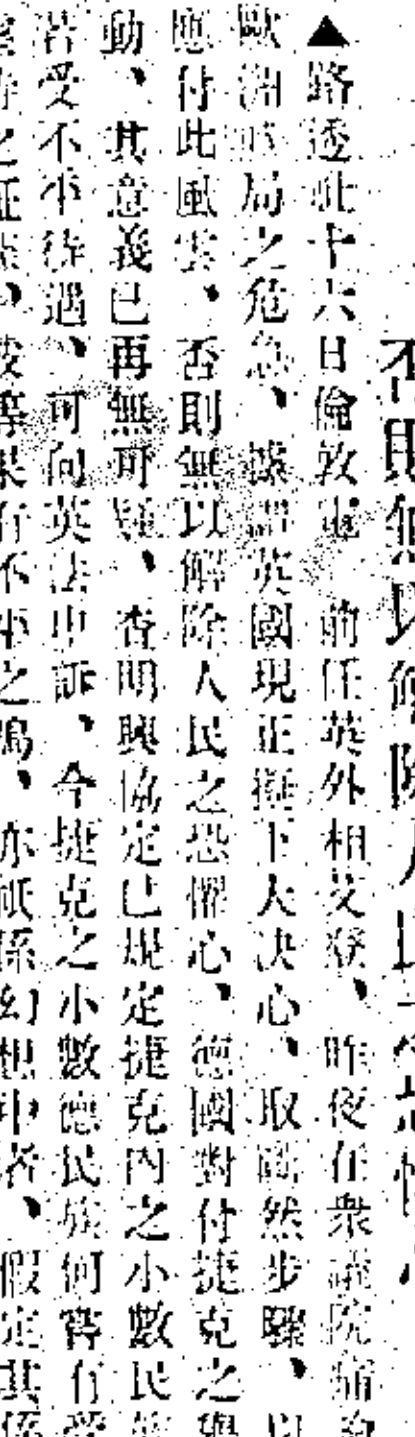 否則無以解除人民之恐懼心
▲路透社十六日倫敦電 前任英外相艾登、昨夜在衆議院痛
歐洲時局之危急、據謂英國現正擬下大決心、取斷然步驟、以
應付此風雲、否則無以解除人民之恐懼心、德國對付捷克之舉
動、其意義已再無可疑、查明興協定已規定捷克內之小數民族
若受不平待遇、可向英法申訴、今捷克之小數德民族何嘗有受
之 、彼等果有不平之鳴、亦祇係幻想中者、假定其係